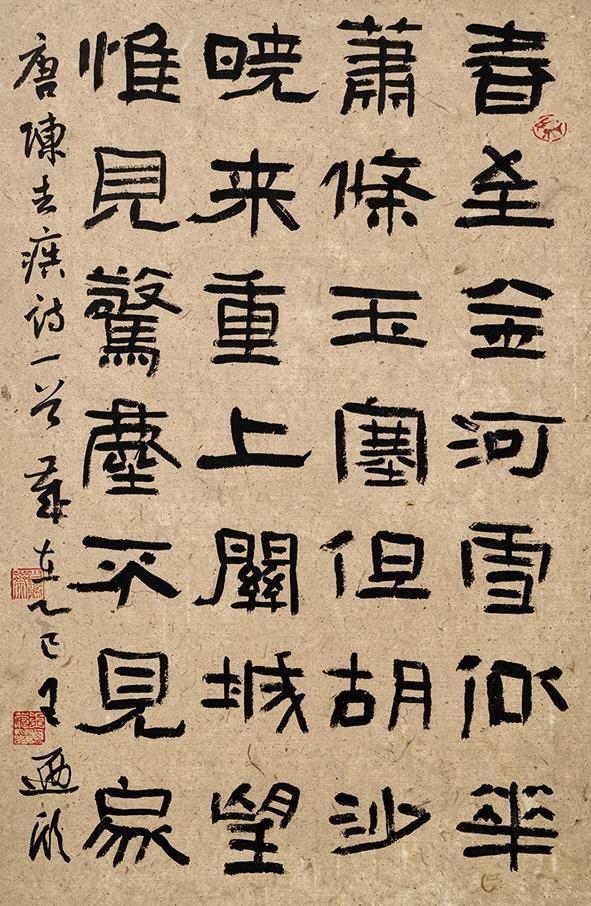 春至金河雪似華
蕭條玉塞但胡沙
晓来重上關城望
惟見驚塵不見家
唐陳去疾诗一首歲在乙巳王